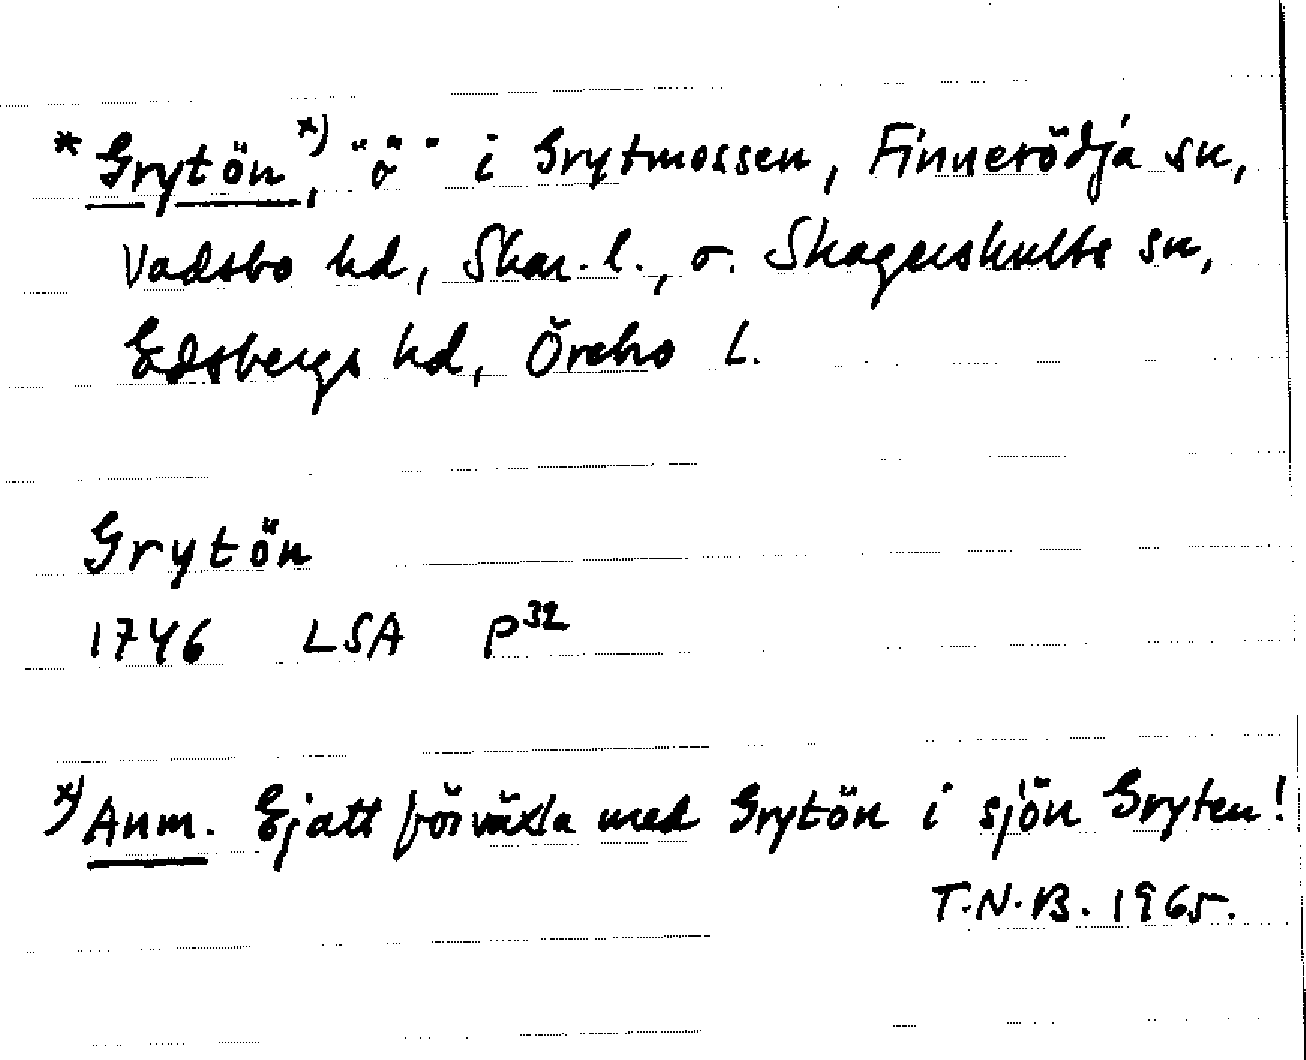 * Grytön x), "ö" i Grytmossen, Finnerödja sn,
Vadsbo hd, Skar. l., o. Skagershults sn,
Edsbergs hd, Örebro l.
Grytön
1746 LSA P32
x) Anm. Ej att förväxla med Grytön i sjön Gryten!
T.N.B. 1965.